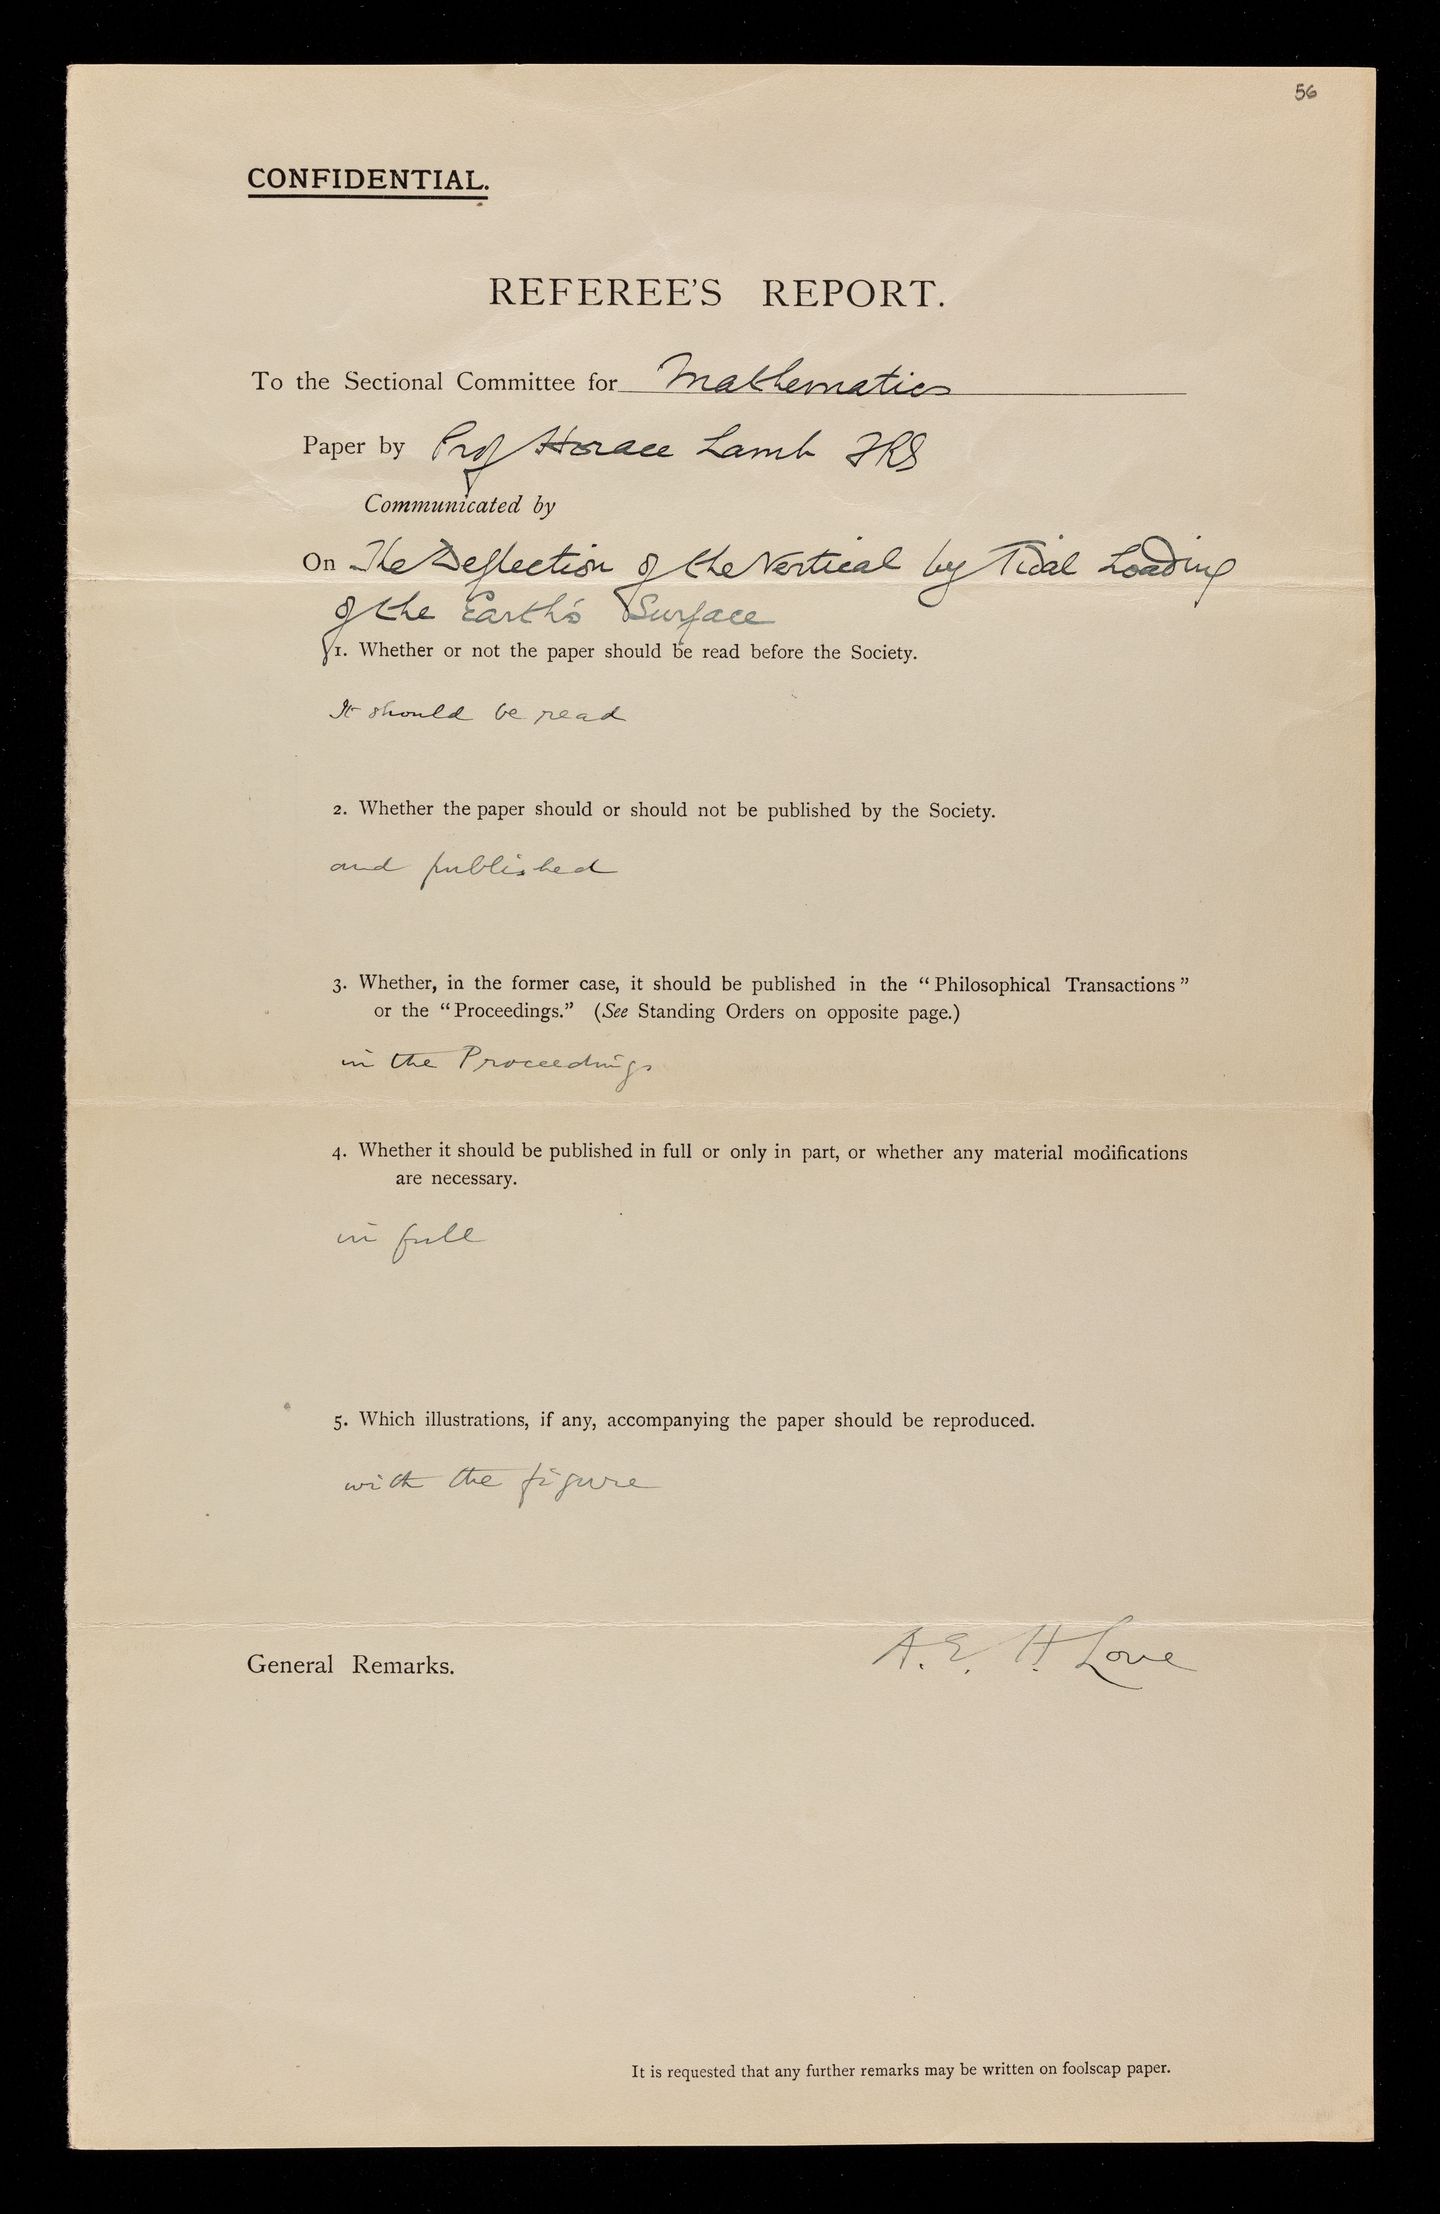 56
CONFIDENTIAL.
REFEREE'S REPORT.
To the Sectional Committee for Mathematics
Paper by Prof Horace Lamb FRS
Communicated by
On The Deflection of the Vertical by Tidal Loading
of the Earth's Surface
1. Whether or not the paper should be read before the Society.
It should be read
2. Whether the paper should or should not be published by the Society.
and published
3. Whether, in the former case, it should be published in the "Philosophical Transactions"
or the "Proceedings." (See Standing Orders on opposite page.)
in the Proceedings
4. Whether it should be published in full or only in part, or whether any material modifications
are necessary.
in full
5. Which illustrations, if any, accompanying the paper should be reproduced.
with the figure
A. E. H. Love
General Remarks.
It is requested that any further remarks may be written on foolscap paper.